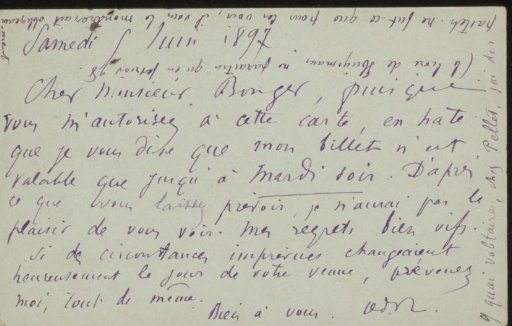 Samedi 5 Juin 1897
Cher Monsieur Bonger, puisque
vous m'autorisez à cette carte, en hate
que je vous dise que mon billet n'est
valable que jusqu'à mardi soir. D'après
ce que vous laissez prévoir, je n'aurai pas le
plaisir de vous voir. Mes regrets bien vifs.
Si de circonstances imprévues changeaient
heureusement le jour de votre venue, prévenez
moi, tout de même.
Bien à vous.
(le livre de Huysmans ne paraitra qu'en
ne fut-ce que pour les voir, il vous le montrerait
9 quai Voltaire, chez Pellet, j'ai des